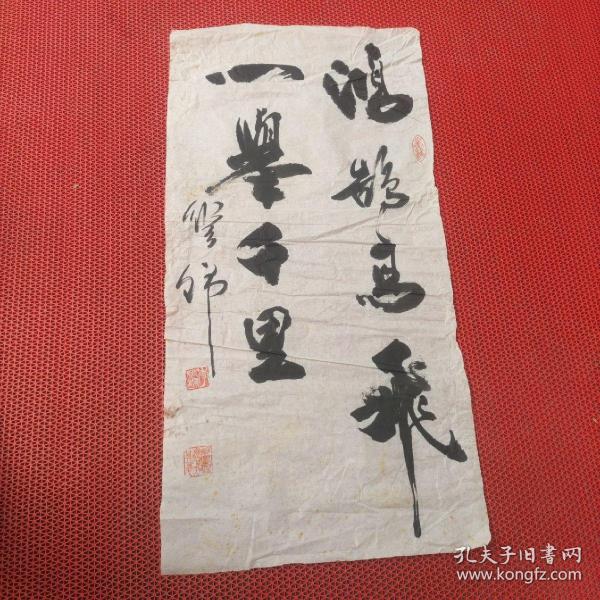 鴻鹄高飛
一舉千里
孔夫子旧書网
www.kongfz.com